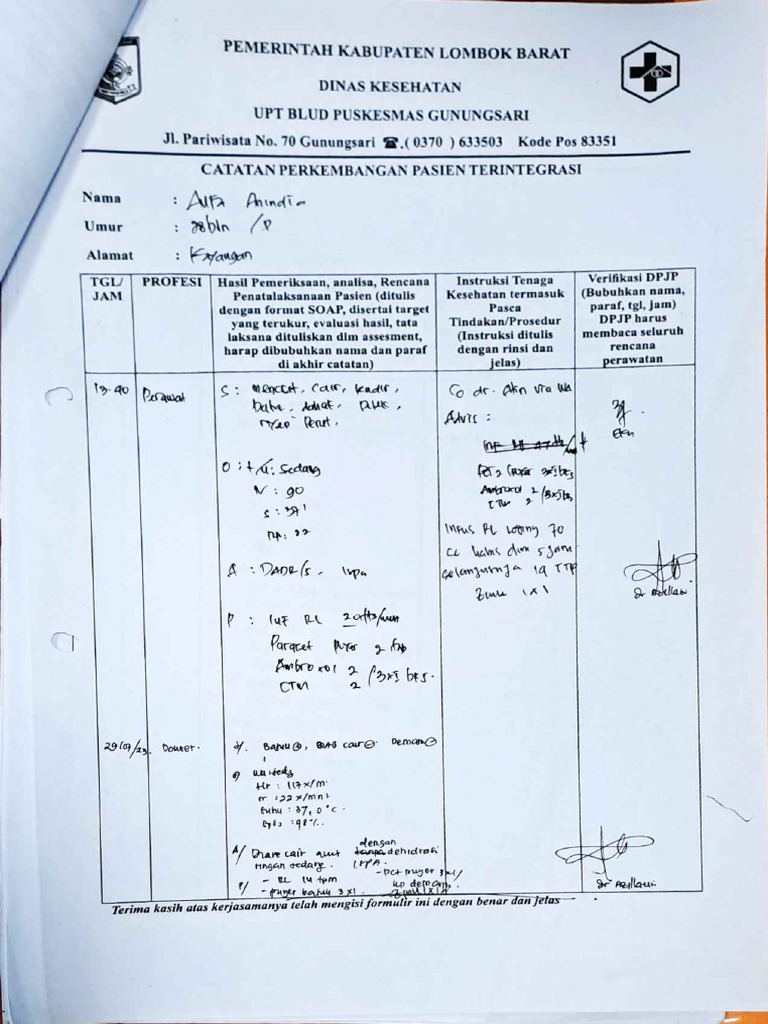 PEMERINTAH KABUPATEN LOMBOK BARAT
DINAS KESEHATAN
UPT BLUD PUSKESMAS GUNUNGSARI
Jl. Pariwisata No. 70 Gunungsari ☎.( 0370 ) 633503 Kode Pos 83351
CATATAN PERKEMBANGAN PASIEN TERINTEGRASI
Nama : Alfa Anindia
Umur : 28 bln / P
Alamat : Kayangan
TGL/
JAM
PROFESI
Hasil Pemeriksaan, analisa, Rencana
Penatalaksanaan Pasien (ditulis
dengan format SOAP, disertai target
yang terukur, evaluasi hasil, tata
laksana dituliskan dlm assesment,
harap dibubuhkan nama dan paraf
di akhir catatan)
Instruksi Tenaga
Kesehatan termasuk
Pasca
Tindakan/Prosedur
(Instruksi ditulis
dengan rinsi dan
jelas)
Verifikasi DPJP
(Bubuhkan nama,
paraf, tgl, jam)
DPJP harus
membaca seluruh
rencana
perawatan
13.40
Perawat
S : mencret, cair,
batuk, pilek,
nyeri perut,
O : Sedang
N : 90
S : 37
RR : 22
A : DADR/S, Ispa
P : Inf RL 20 tts/mnt
Paracet puyer 2
Ambroxol 2 / 3x1 bks.
CTM 2
Co dr. via wa
Advis :
PCT 2 puyer 3x1 bks
Ambroxol 2 / 3x1 bks
CTM 2
Infus RL loging 70
cc habis dlm 5 jam
selanjutnya 14 TTP
Zink 1x1
dr Azillawi
29/07/23
Dokter.
S/. Batuk ⊕, BAB cair ⊖ Demam ⊖
O)
Hr : 117 x/m
rr : 22 x/mnt
Suhu : 37,0 °C.
SpO2 : 98%.
A/ Diare cair akut dengan dehidrasi
ringan sedang. ISPA.
P/ - RL 14 tpm
- puyer batuk 3x1.
- pct puyer 3x1/
k/p demam.
Zink 1x1
dr Azillawi
Terima kasih atas kerjasamanya telah mengisi formulir ini dengan benar dan jelas